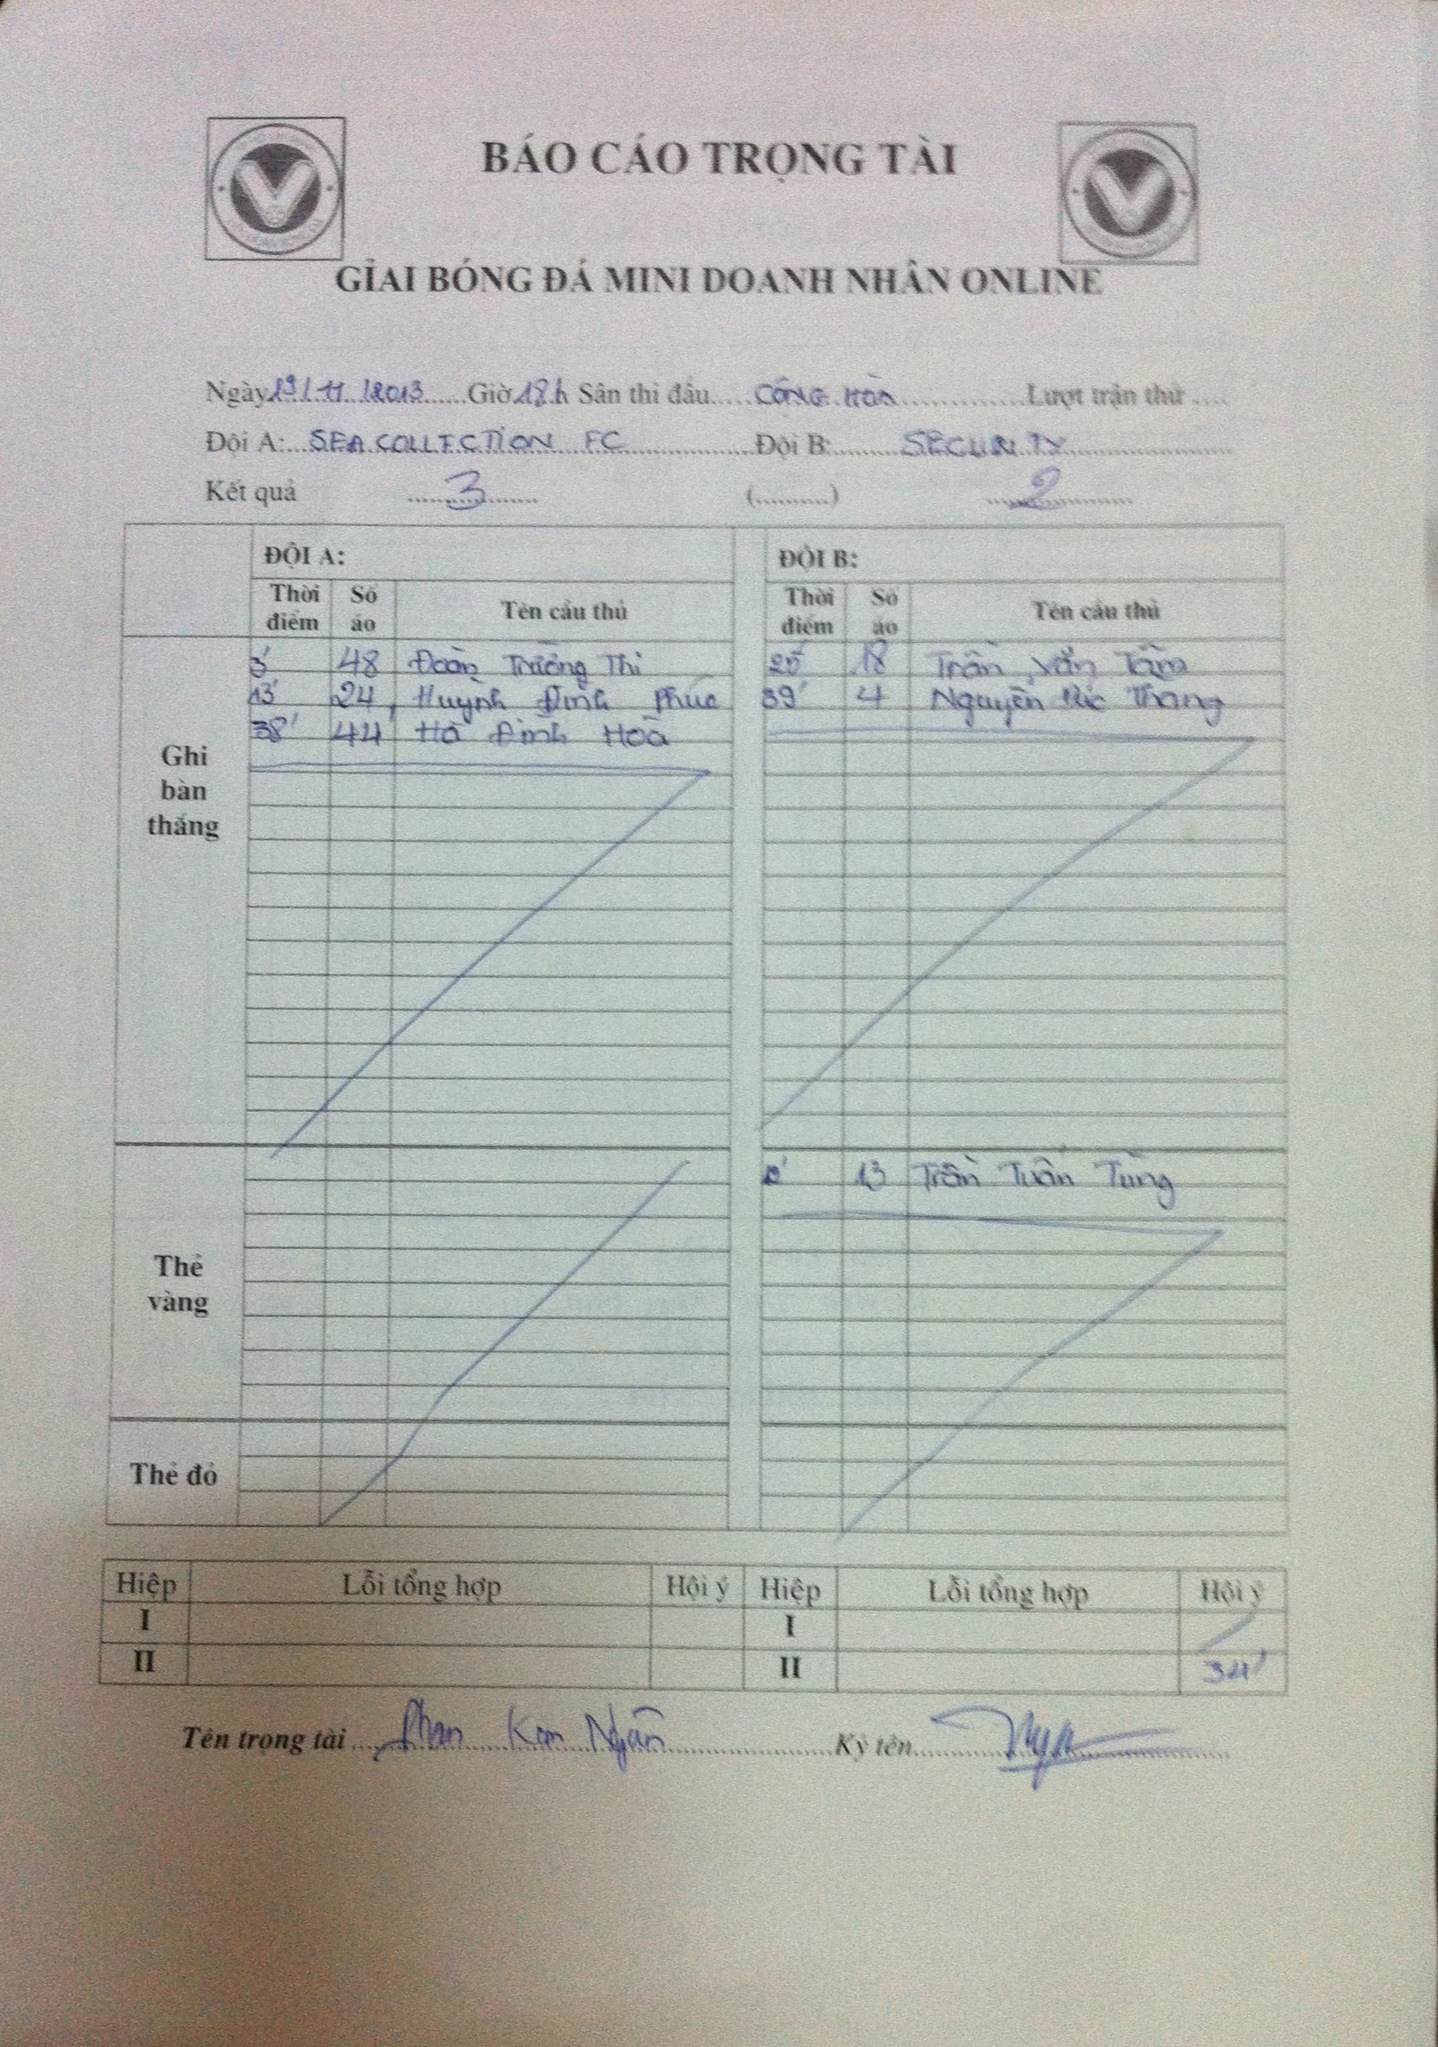 BÁO CÁO TRỌNG TÀI
GIẢI BÓNG ĐÁ MINI DOANH NHÂN ONLINE
Ngày 19/11/2013 Giờ 18h Sân thi đấu CỘNG HÒA Lượt trận thứ
Đội A: SEA COLLECTION FC Đội B: SECURITY
Kết quả 3 (..........) 2
ĐỘI A: ĐỘI B:
Thời điểm Số áo Tên cầu thủ Thời điểm Số áo Tên cầu thủ
Ghi bàn thắng
3' 48 Đoàn Trường Thi 25' 18 Trần Văn Tâm
13' 24 Huỳnh Đình Phúc 39' 4 Nguyễn Đức Thắng
38' 44 Hà Đình Hoà
Thẻ vàng
13 Trần Tuấn Tùng
Thẻ đỏ
Hiệp Lỗi tổng hợp Hội ý Hiệp Lỗi tổng hợp Hội ý
I I
II II 34'
Tên trọng tài Phan Kim Ngân Ký tên